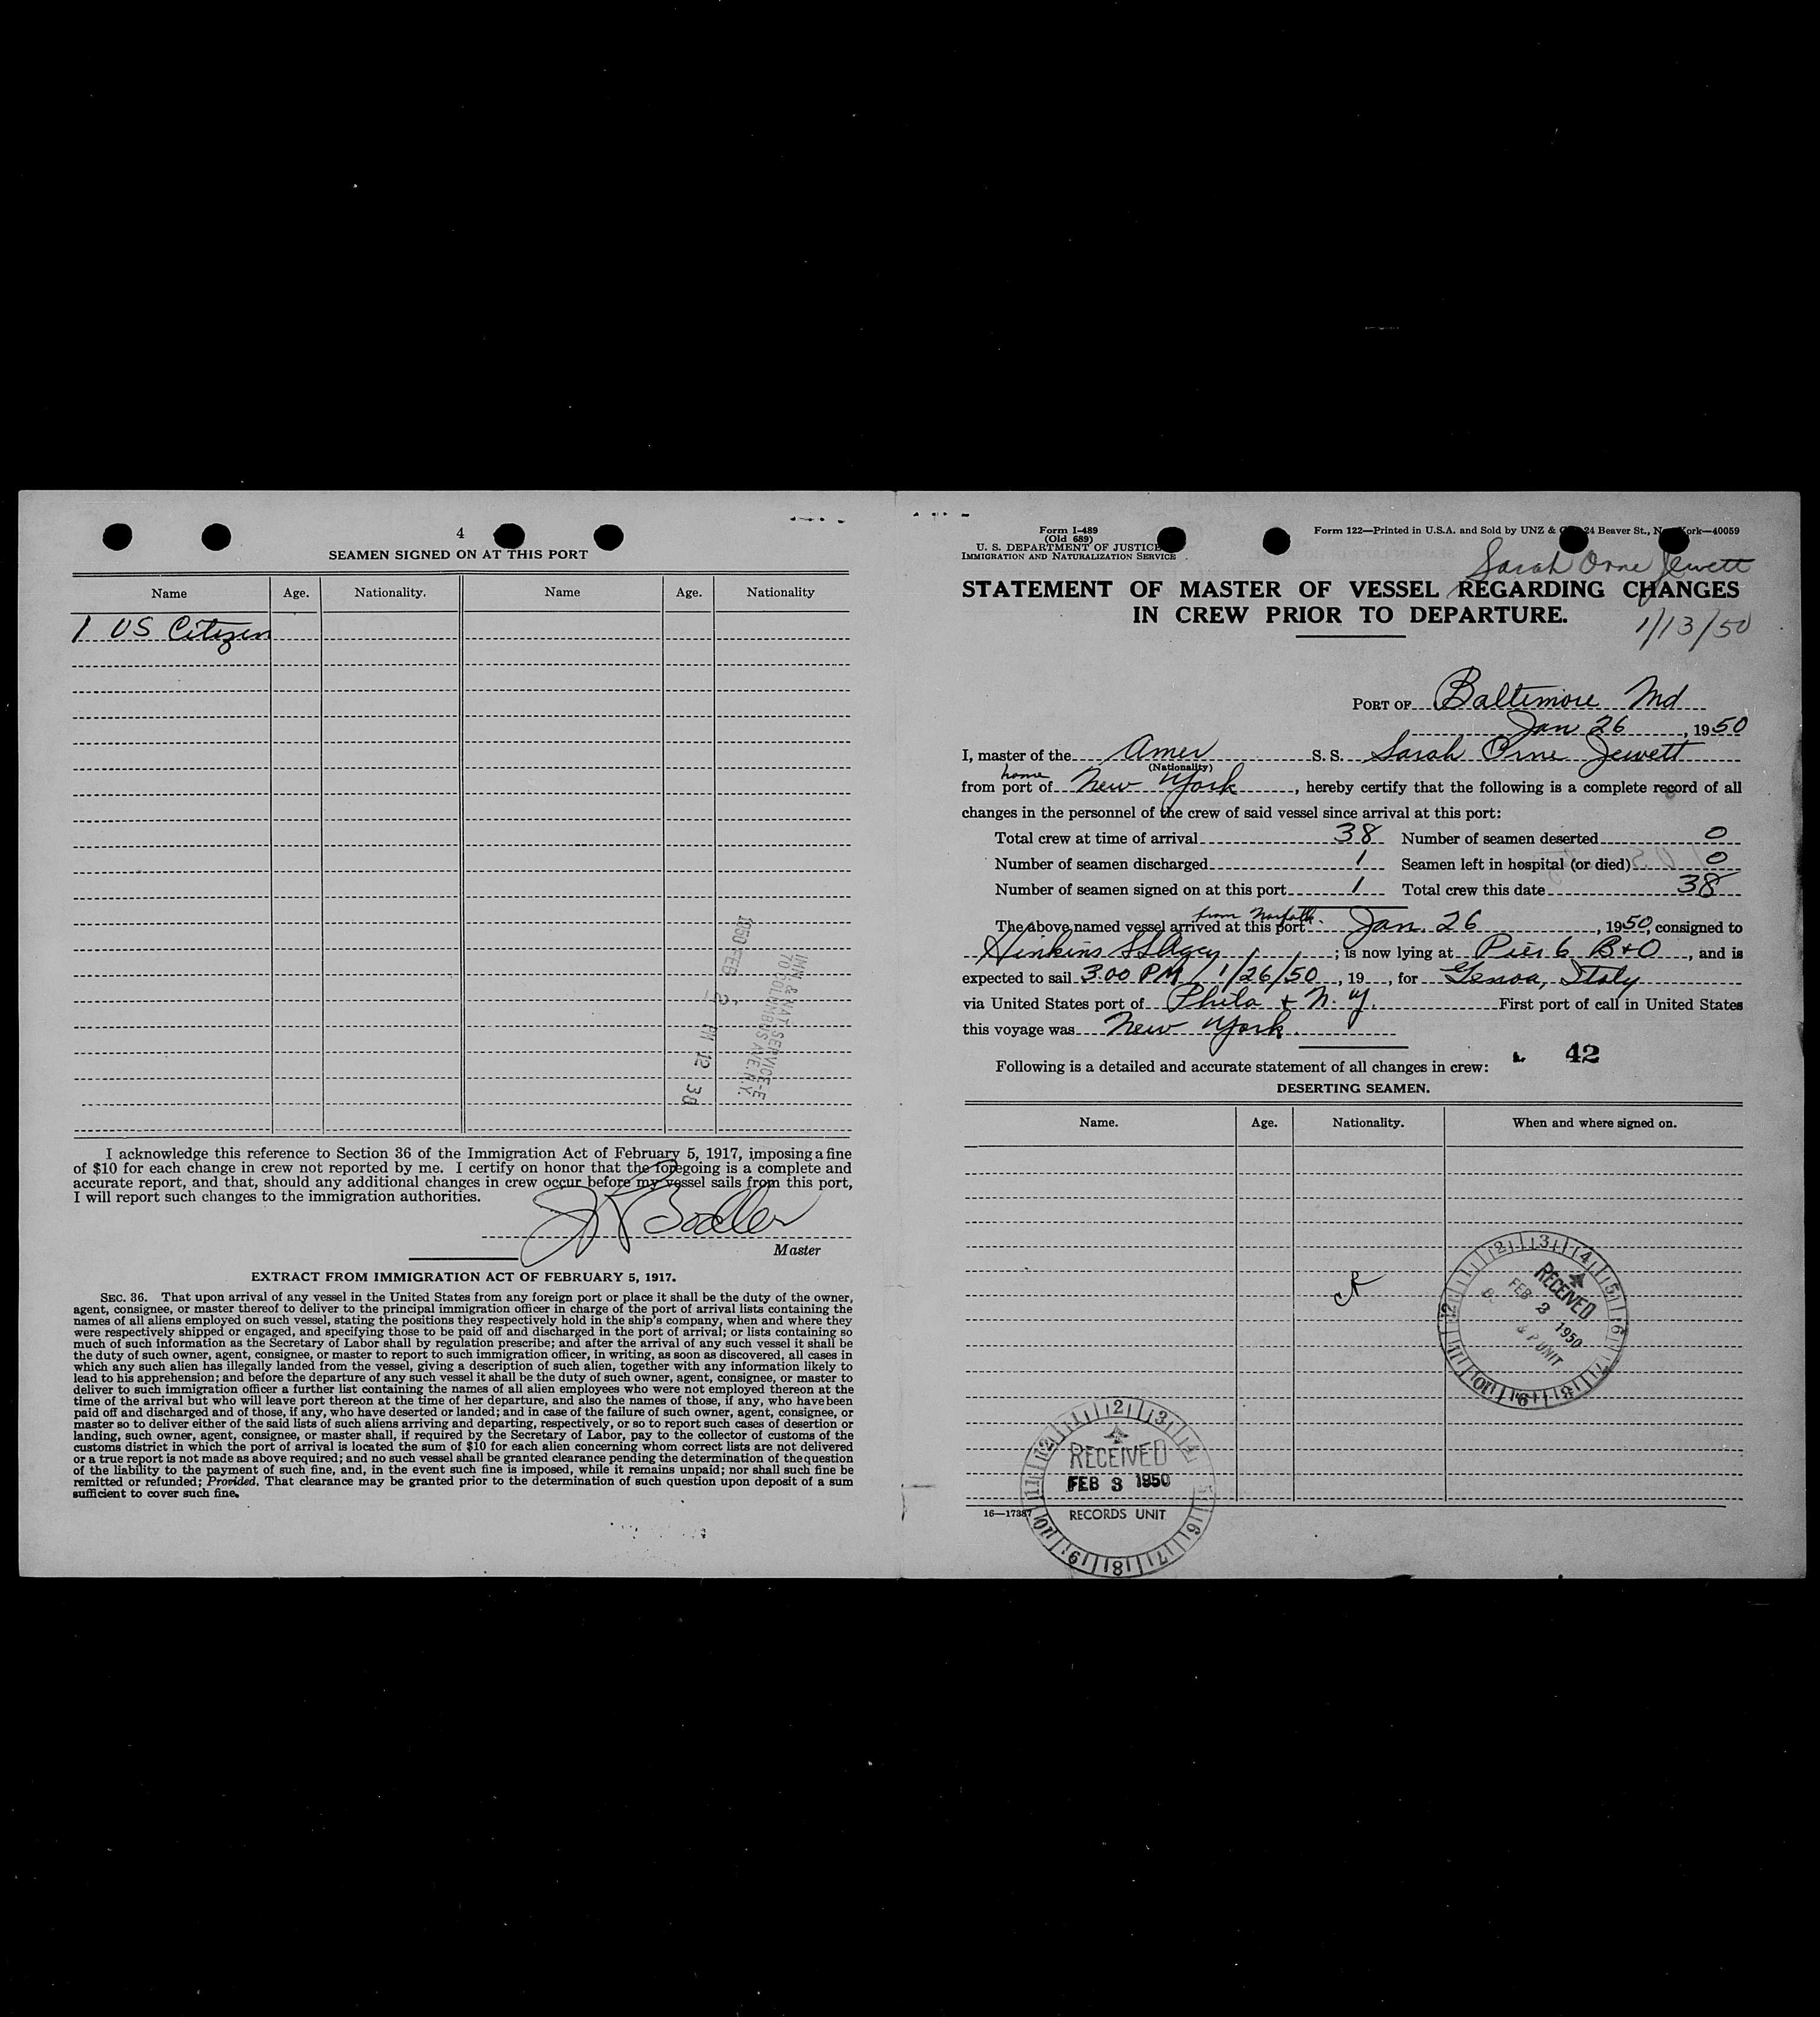 4
SEAMEN SIGNED ON AT THIS PORT
Name Age. Nationality. Name Age. Nationality
1 US Citizen
1950 FEB -2 PM 12 30
IMM. & NAT. SERVICE-E
70 COLUMBUS AVE. N.Y.
I acknowledge this reference to Section 36 of the Immigration Act of February 5, 1917, imposing a fine
of $10 for each change in crew not reported by me. I certify on honor that the foregoing is a complete and
accurate report, and that, should any additional changes in crew occur before my vessel sails from this port,
I will report such changes to the immigration authorities.
Master
EXTRACT FROM IMMIGRATION ACT OF FEBRUARY 5, 1917.
SEC. 36. That upon arrival of any vessel in the United States from any foreign port or place it shall be the duty of the owner,
agent, consignee, or master thereof to deliver to the principal immigration officer in charge of the port of arrival lists containing the
names of all aliens employed on such vessel, stating the positions they respectively hold in the ship's company, when and where they
were respectively shipped or engaged, and specifying those to be paid off and discharged in the port of arrival; or lists containing so
much of such information as the Secretary of Labor shall by regulation prescribe; and after the arrival of any such vessel it shall be
the duty of such owner, agent, consignee, or master to report to such immigration officer, in writing, as soon as discovered, all cases in
which any such alien has illegally landed from the vessel, giving a description of such alien, together with any information likely to
lead to his apprehension; and before the departure of any such vessel it shall be the duty of such owner, agent, consignee, or master to
deliver to such immigration officer a further list containing the names of all alien employees who were not employed thereon at the
time of the arrival but who will leave port thereon at the time of her departure, and also the names of those, if any, who have been
paid off and discharged and of those, if any, who have deserted or landed; and in case of the failure of such owner, agent, consignee, or
master so to deliver either of the said lists of such aliens arriving and departing, respectively, or so to report such cases of desertion or
landing, such owner, agent, consignee, or master shall, if required by the Secretary of Labor, pay to the collector of customs of the
customs district in which the port of arrival is located the sum of $10 for each alien concerning whom correct lists are not delivered
or a true report is not made as above required; and no such vessel shall be granted clearance pending the determination of the question
of the liability to the payment of such fine, and, in the event such fine is imposed, while it remains unpaid; nor shall such fine be
remitted or refunded; Provided, That clearance may be granted prior to the determination of such question upon deposit of a sum
sufficient to cover such fine.
Form I-489
(Old 689)
U. S. DEPARTMENT OF JUSTICE
IMMIGRATION AND NATURALIZATION SERVICE
Form 122—Printed in U.S.A. and Sold by UNZ & 24 Beaver St., New York—40059
Sarah Orne Jewett
STATEMENT OF MASTER OF VESSEL REGARDING CHANGES
IN CREW PRIOR TO DEPARTURE.
1/13/50
PORT OF Baltimore Md
Jan 26, 1950
I, master of the Amer S. S. Sarah Orne Jewett
(Nationality)
home
from port of New York, hereby certify that the following is a complete record of all
changes in the personnel of the crew of said vessel since arrival at this port:
Total crew at time of arrival 38 Number of seamen deserted 0
Number of seamen discharged 1 Seamen left in hospital (or died) 0
Number of seamen signed on at this port 1 Total crew this date 38
from Norfolk
The above named vessel arrived at this port Jan. 26, 1950, consigned to
Hinkins SS Agcy; is now lying at Pier 6 B+O, and is
expected to sail 3:00 PM 1/26/50, 19 , for Genoa, Italy
via United States port of Phila + N.Y. First port of call in United States
this voyage was New York.
42
Following is a detailed and accurate statement of all changes in crew:
DESERTING SEAMEN.
Name. Age. Nationality. When and where signed on.
RECEIVED
FEB 3 1950
& P UNIT
RECEIVED
FEB 3 1950
RECORDS UNIT
16—17387